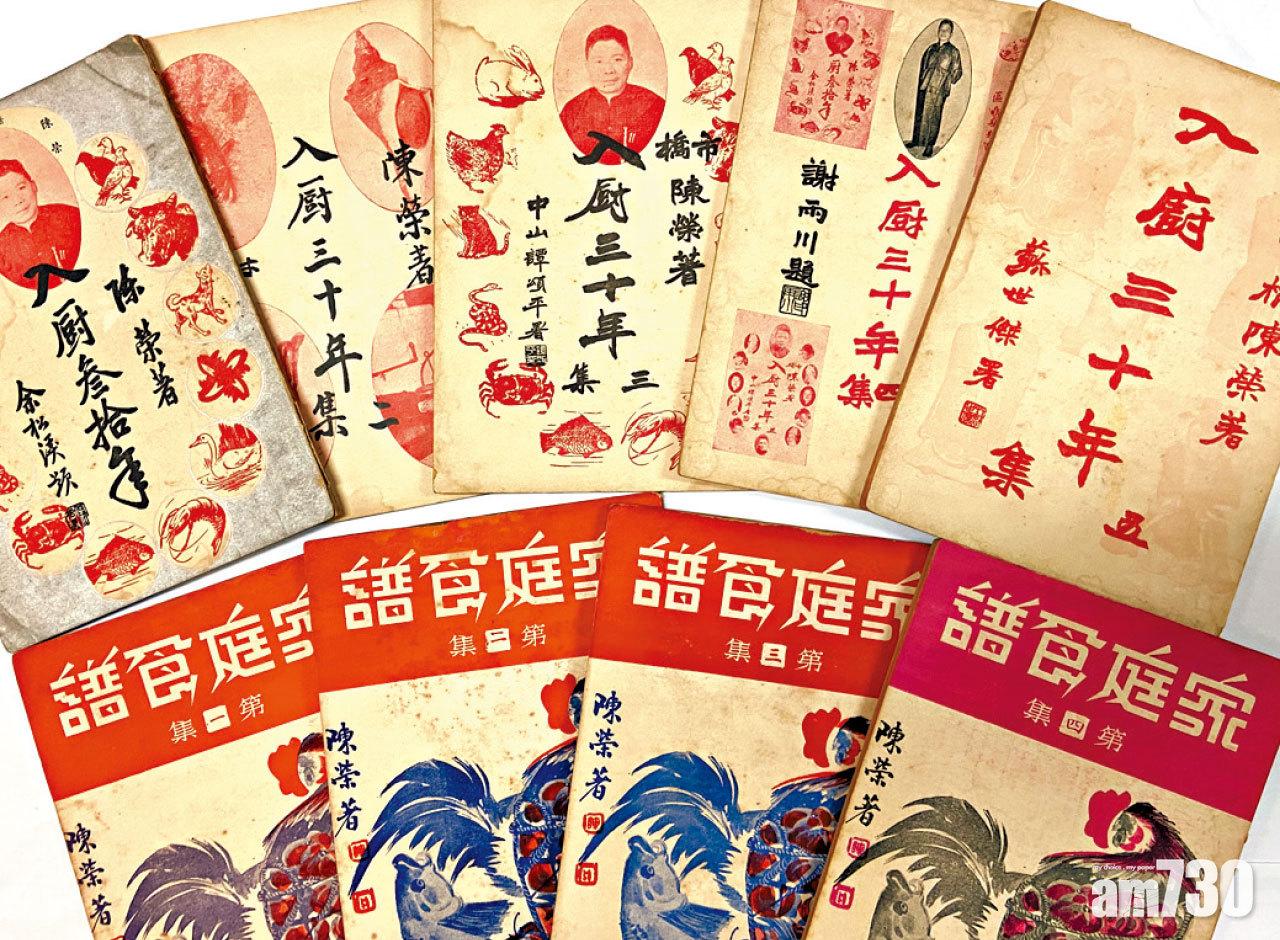 陳榮
陳榮著
入厨叁拾年
余松溪題
陳榮著
入厨三十年
二集
市橋陳榮著
入厨三十年
三集
中山譚頌平署
入厨三十年四集
謝雨川題
陳榮著
入厨三十年
入厨三十年
橋陳榮著
入厨三十年五集
蘇世傑署
家庭食譜
第一集
陳榮著
家庭食譜
第二集
陳榮著
家庭食譜
第三集
陳榮著
家庭食譜
第四集
陳榮著
my choice . my paper
am730